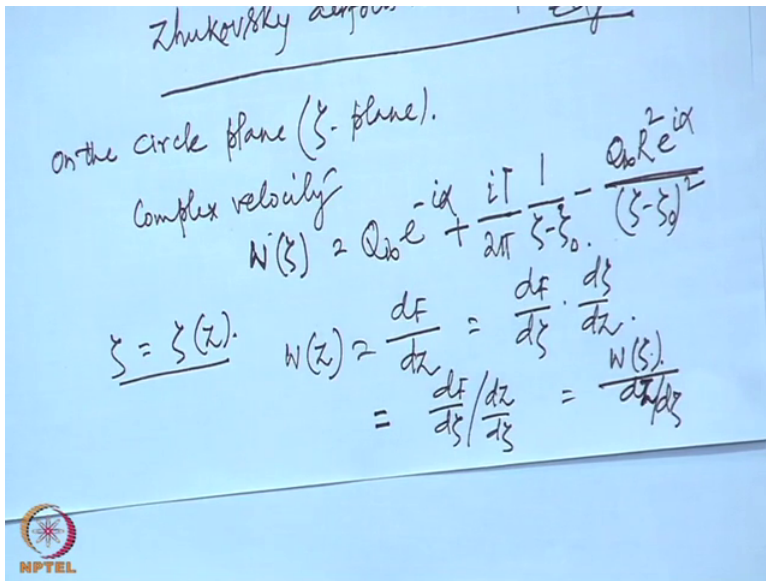 Zhukovsky
On the circle plane (ζ-plane).
Complex velocity
W(ζ) = Q∞ e^{-iα} + iΓ/2π 1/(ζ-ζ₀) - Q∞R²e^{iα}/(ζ-ζ₀)²
ζ = ζ(z). W(z) = dF/dz = dF/dζ · dζ/dz.
= dF/dζ / dz/dζ = W(ζ)./dz/dζ
NPTEL